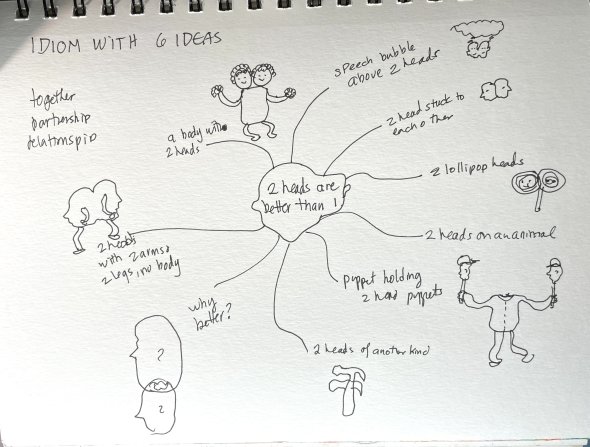 IDIOM WITH 6 IDEAS
together
partnership
relationspip
a body with
2 heads
speech bubble
above 2 heads
2 head stuck to
each other
2 lollipop heads
2 heads are
better than 1
2 heads on an animal
2 heads
with 2 arms
2 legs, no body
puppet holding
2 head puppets
why
better?
2 heads of another kind
?
?